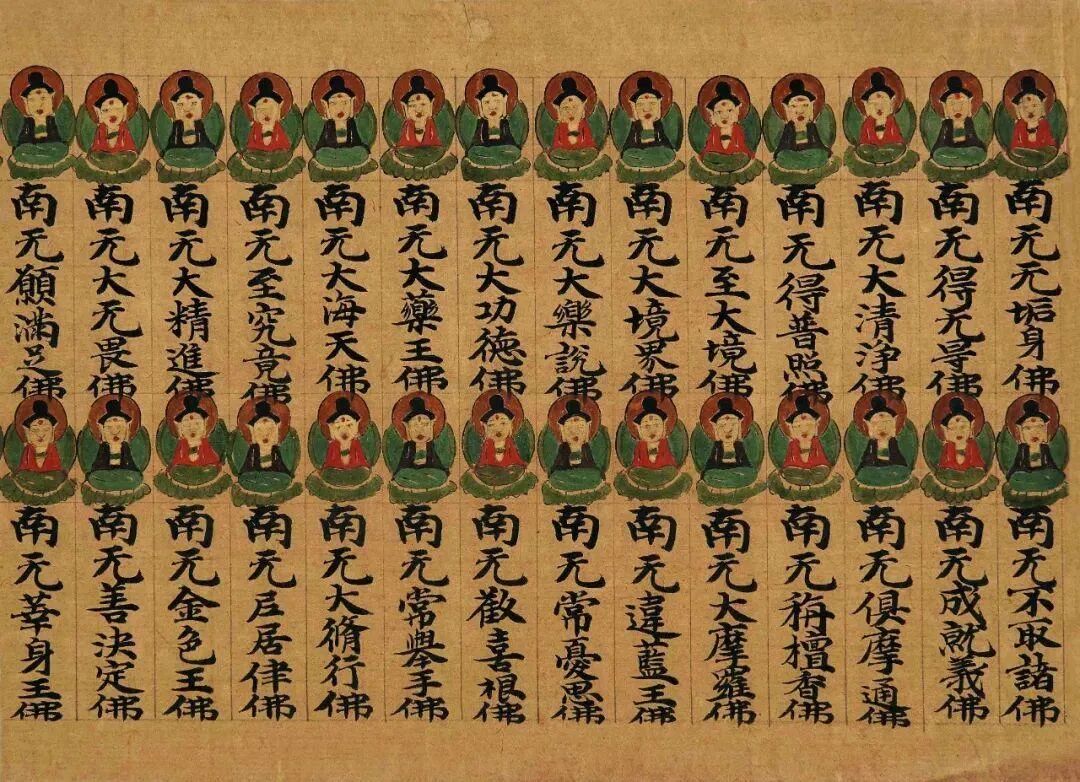 南无无垢身佛
南无得无㝵佛
南无大清淨佛
南无得普照佛
南无至大境佛
南无大境界佛
南无大樂說佛
南无大功德佛
南无大藥王佛
南无大海天佛
南无至究竟佛
南无大精進佛
南无大无畏佛
南无願滿足佛
南无不取諸佛
南无成就義佛
南无俱摩通佛
南无栴檀香佛
南无大摩羅佛
南无違藍王佛
南无常憂思佛
南无歡喜根佛
南无常舉手佛
南无大脩行佛
南无尼居律佛
南无金色王佛
南无善決定佛
南无華身王佛